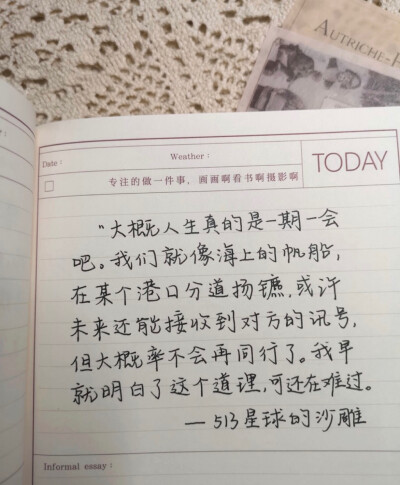 AUTRICHE-
Date：
Weather：
TODAY
专注的做一件事，画画啊看书啊摄影啊
"大概人生真的是一期一会
吧。我们就像海上的帆船，
在某个港口分道扬镳，或许
未来还能接收到对方的讯号，
但大概率不会再同行了。我早
就明白了这个道理，可还在难过。
—513星球的沙雕
Informal essay：